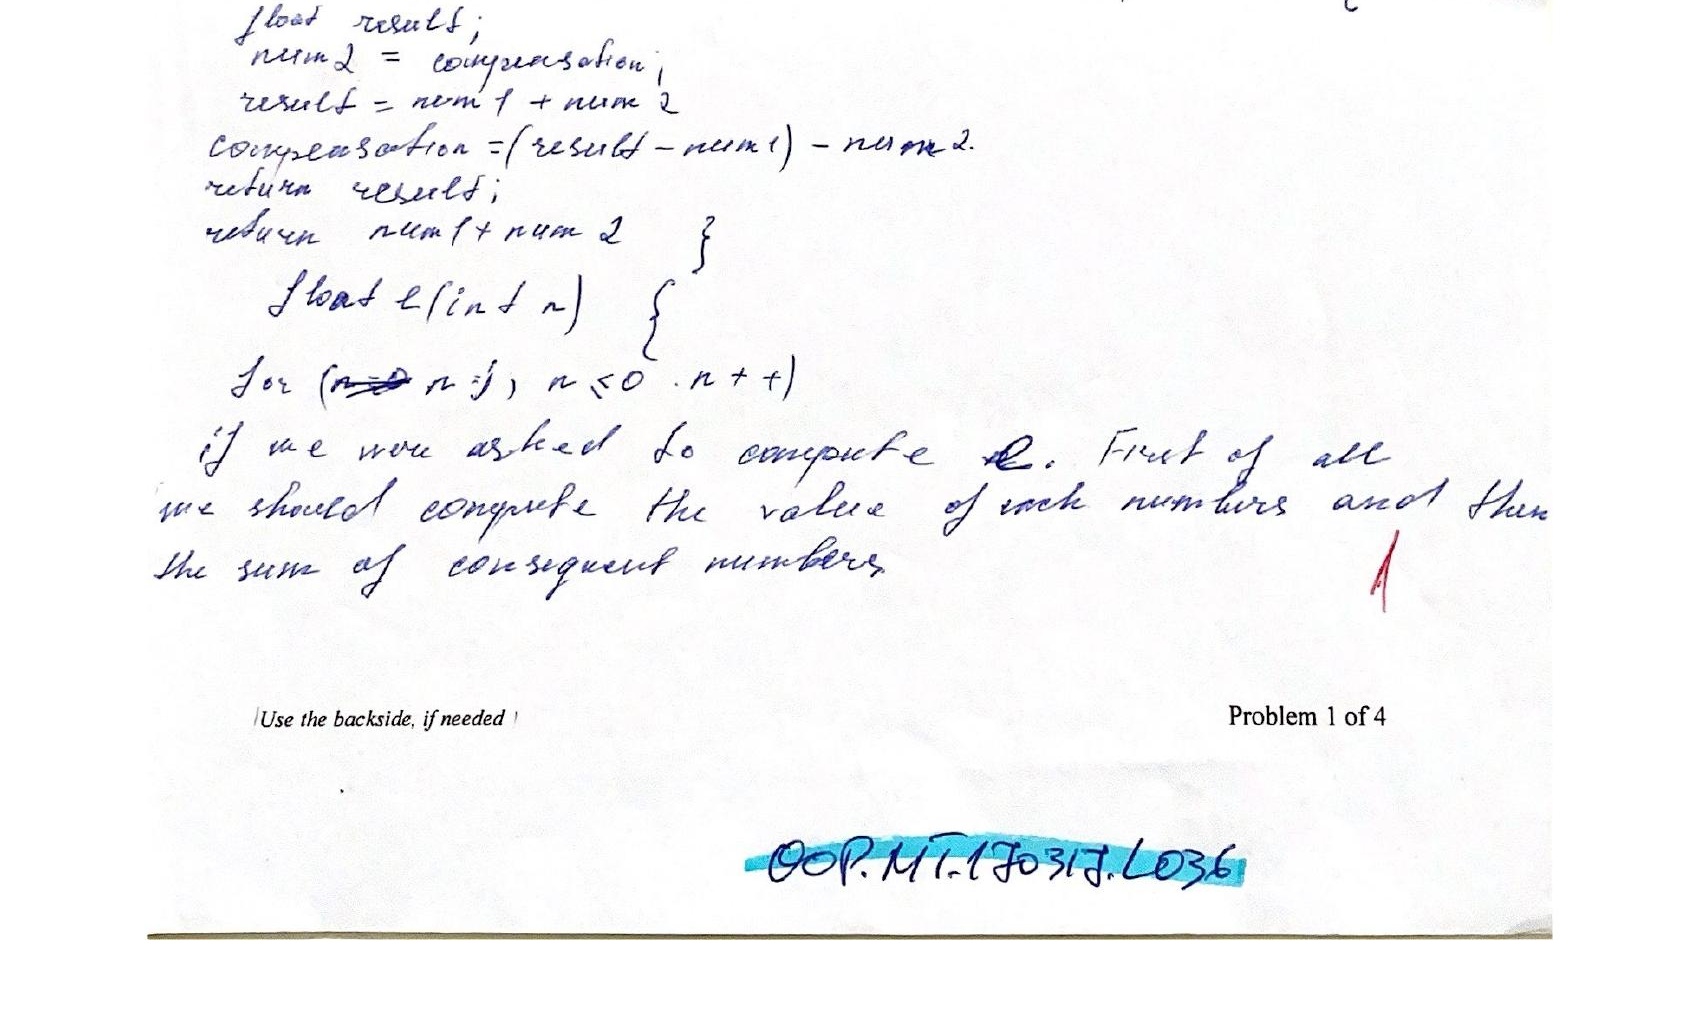 float result;
num2 = compensation;
result = num1 + num2
compensation = (result - num1) - num2.
return result;
return num1 + num2 }
float e(int n) {
for ( n=1, n ≤ 0 . n++)
if we were asked to compute e. First of all
we should compute the value of each numbers and then
the sum of consequent numbers
1
Use the backside, if needed
Problem 1 of 4
OOP.MT.170317.L036